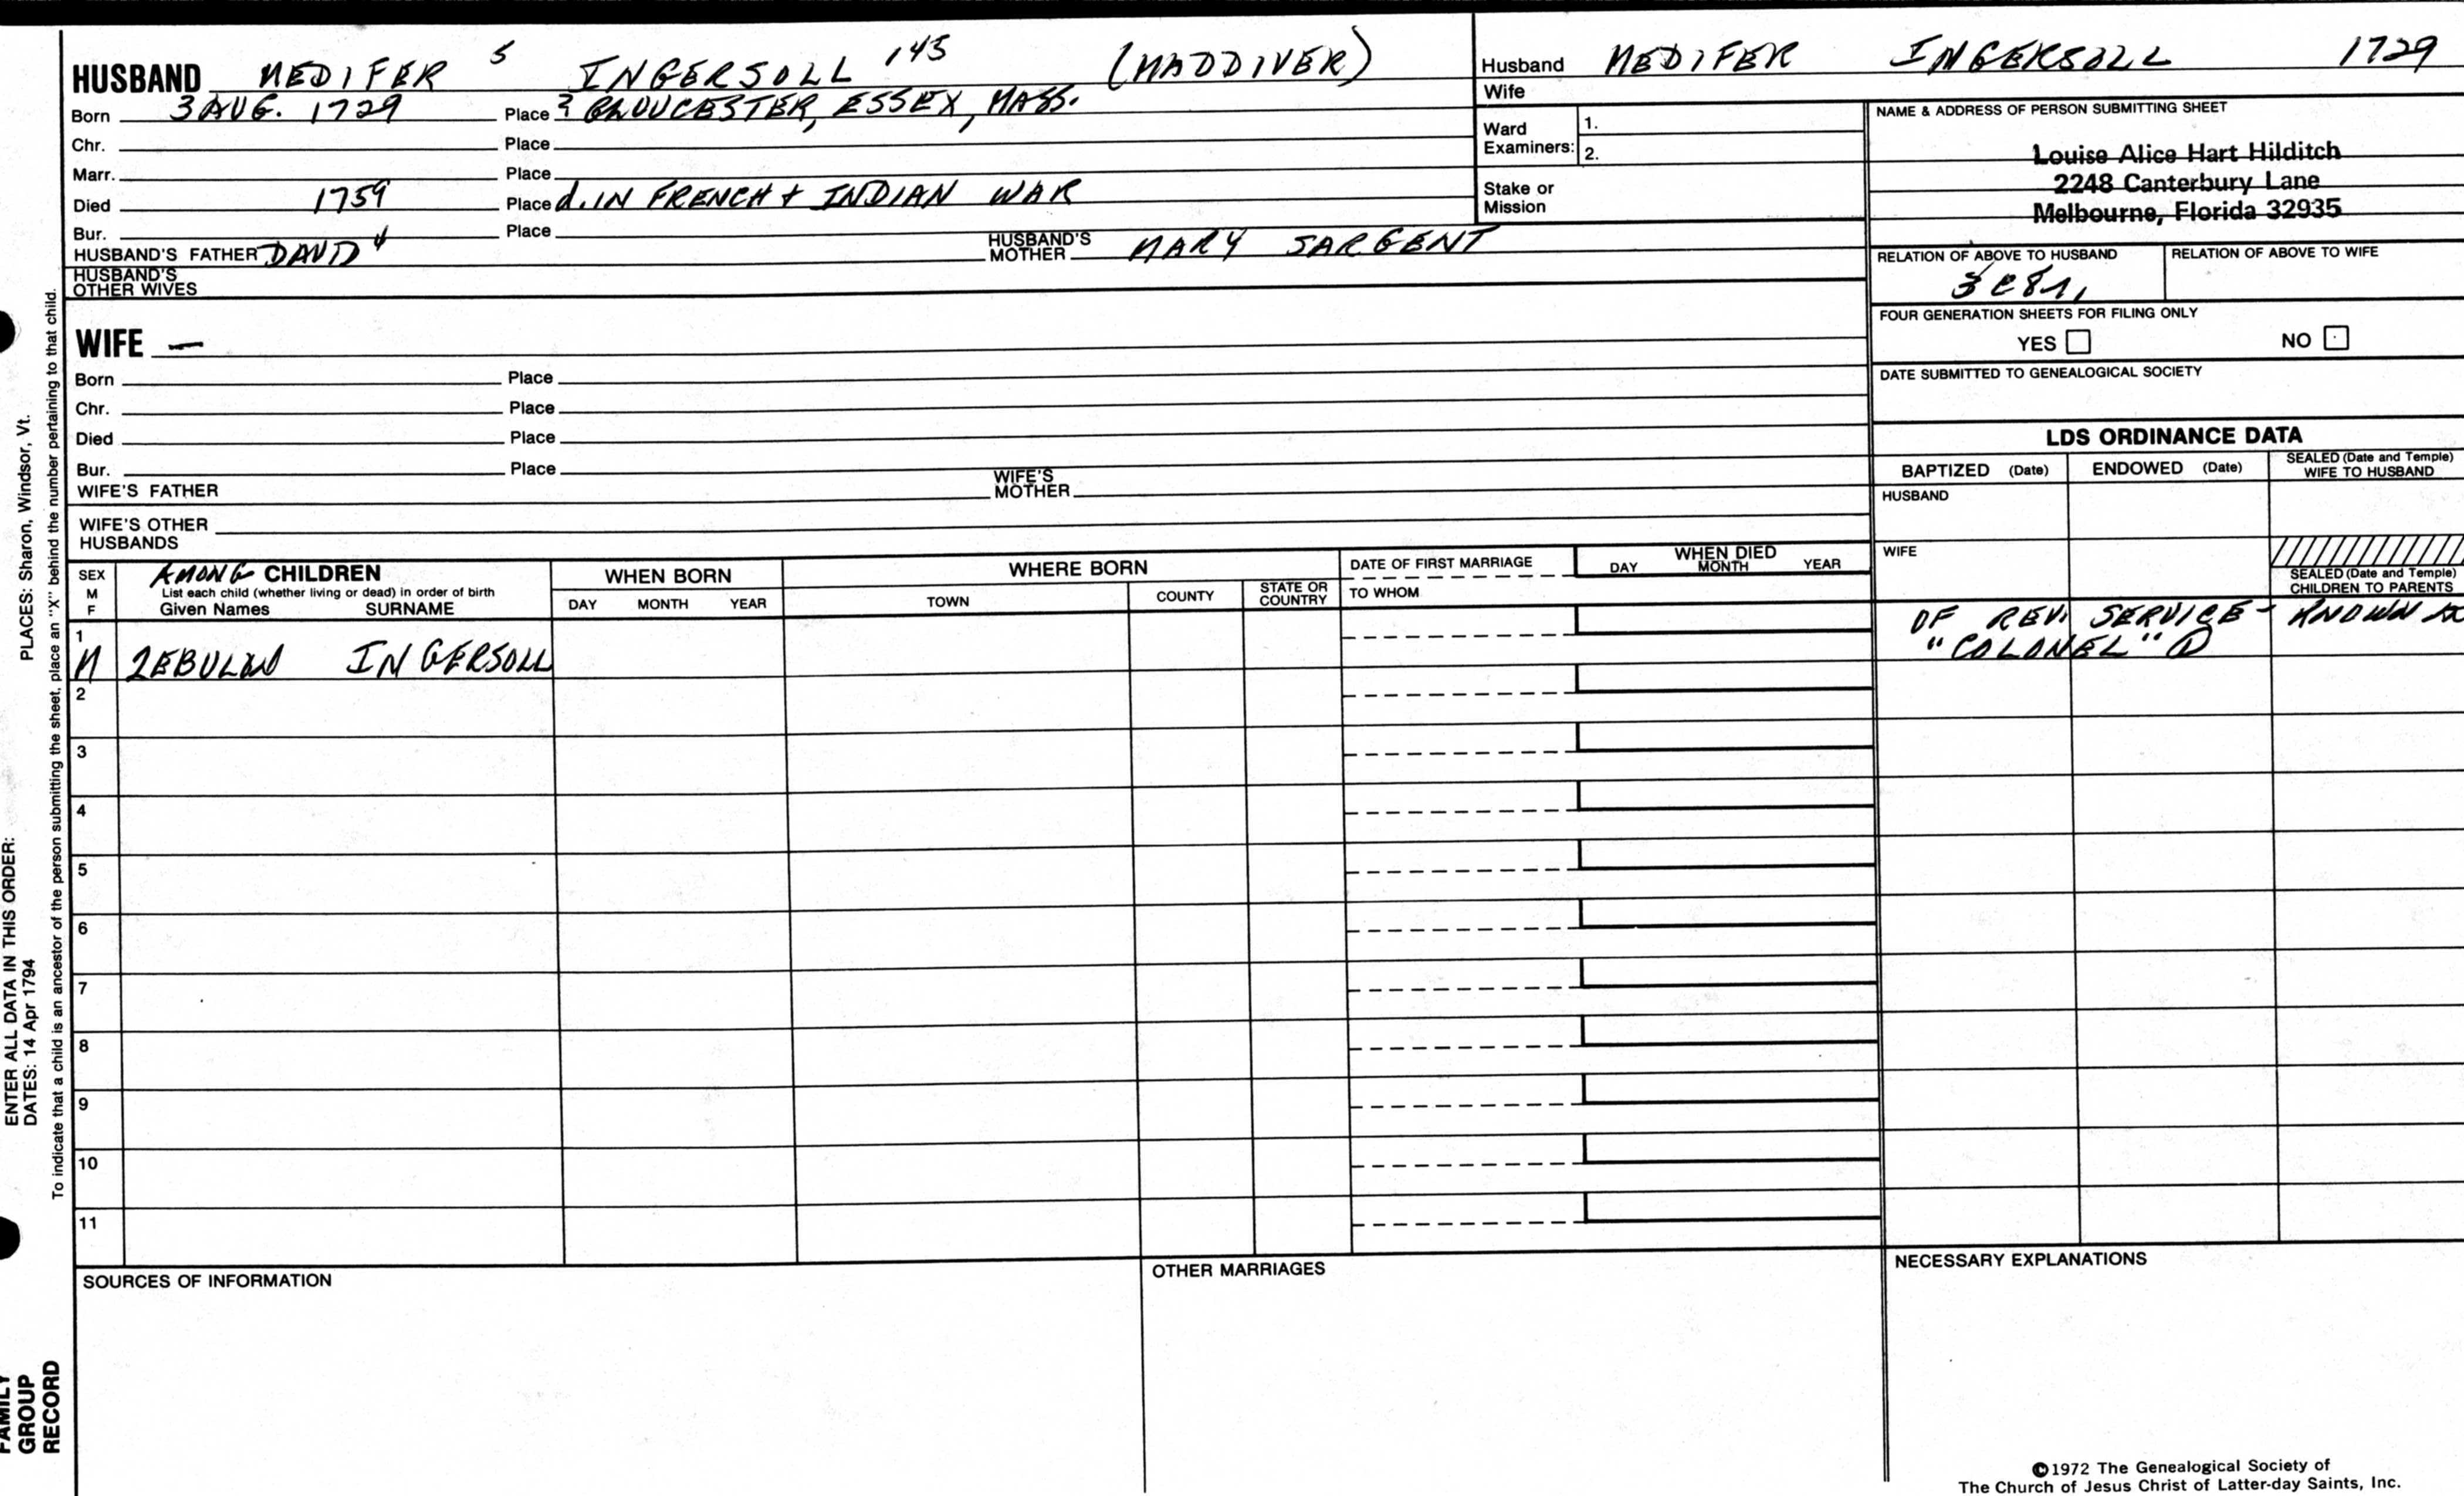 HUSBAND MEDIFER 5 INGERSOLL 145 (MADDIVER)
Born 3 AUG. 1729 Place ? GLOUCESTER, ESSEX, MASS.
Chr. Place
Marr. Place
Died 1759 Place d. IN FRENCH + INDIAN WAR
Bur. Place
HUSBAND'S FATHER DAVID 4 HUSBAND'S MOTHER MARY SARGENT
HUSBAND'S
OTHER WIVES
Husband MEDIFER INGERSOLL 1729
Wife
Ward
Examiners:
1.
2.
Stake or
Mission
NAME & ADDRESS OF PERSON SUBMITTING SHEET
Louise Alice Hart Hilditch
2248 Canterbury Lane
Melbourne, Florida 32935
RELATION OF ABOVE TO HUSBAND RELATION OF ABOVE TO WIFE
FOUR GENERATION SHEETS FOR FILING ONLY
YES NO
DATE SUBMITTED TO GENEALOGICAL SOCIETY
WIFE —
Born Place
Chr. Place
Died Place
Bur. Place
WIFE'S FATHER WIFE'S MOTHER
WIFE'S OTHER
HUSBANDS
LDS ORDINANCE DATA
BAPTIZED (Date) ENDOWED (Date) SEALED (Date and Temple) WIFE TO HUSBAND
HUSBAND
WIFE
SEALED (Date and Temple)
CHILDREN TO PARENTS
SEX
M
F
AMONG CHILDREN
List each child (whether living or dead) in order of birth
Given Names SURNAME
WHEN BORN
DAY MONTH YEAR
WHERE BORN
TOWN COUNTY STATE OR COUNTRY
DATE OF FIRST MARRIAGE
TO WHOM
WHEN DIED
DAY MONTH YEAR
1
M ZEBULON INGERSOLL
OF REV. SERVICE - KNOWN AS
"COLONEL" D
2
3
4
5
6
7
8
9
10
11
SOURCES OF INFORMATION
OTHER MARRIAGES
NECESSARY EXPLANATIONS
©1972 The Genealogical Society of
The Church of Jesus Christ of Latter-day Saints, Inc.
PLACES: Sharon, Windsor, Vt.
ENTER ALL DATA IN THIS ORDER:
DATES: 14 Apr 1794
To indicate that a child is an ancestor of the person submitting the sheet, place an "X" behind the number pertaining to that child.
FAMILY
GROUP
RECORD